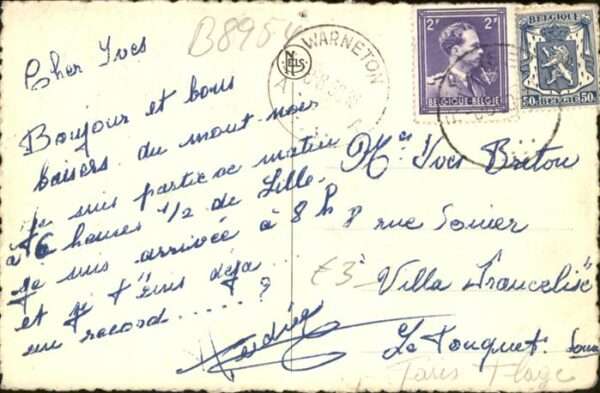 B8954
Cher Yves
Bonjour et bons
baisers du mont noir
je suis partie ce matin
à 6 heures 1/2 de Lille.
je suis arrivée à 8 h
et déjà...
un record......?
WARNETON
NELS
2F 2F
BELGIQUE-BELGIE
BELGIQUE
50 BELGIE 50
Yves Breton
8 rue
€3
Villa Francelise
Le Touquet
Paris Plage